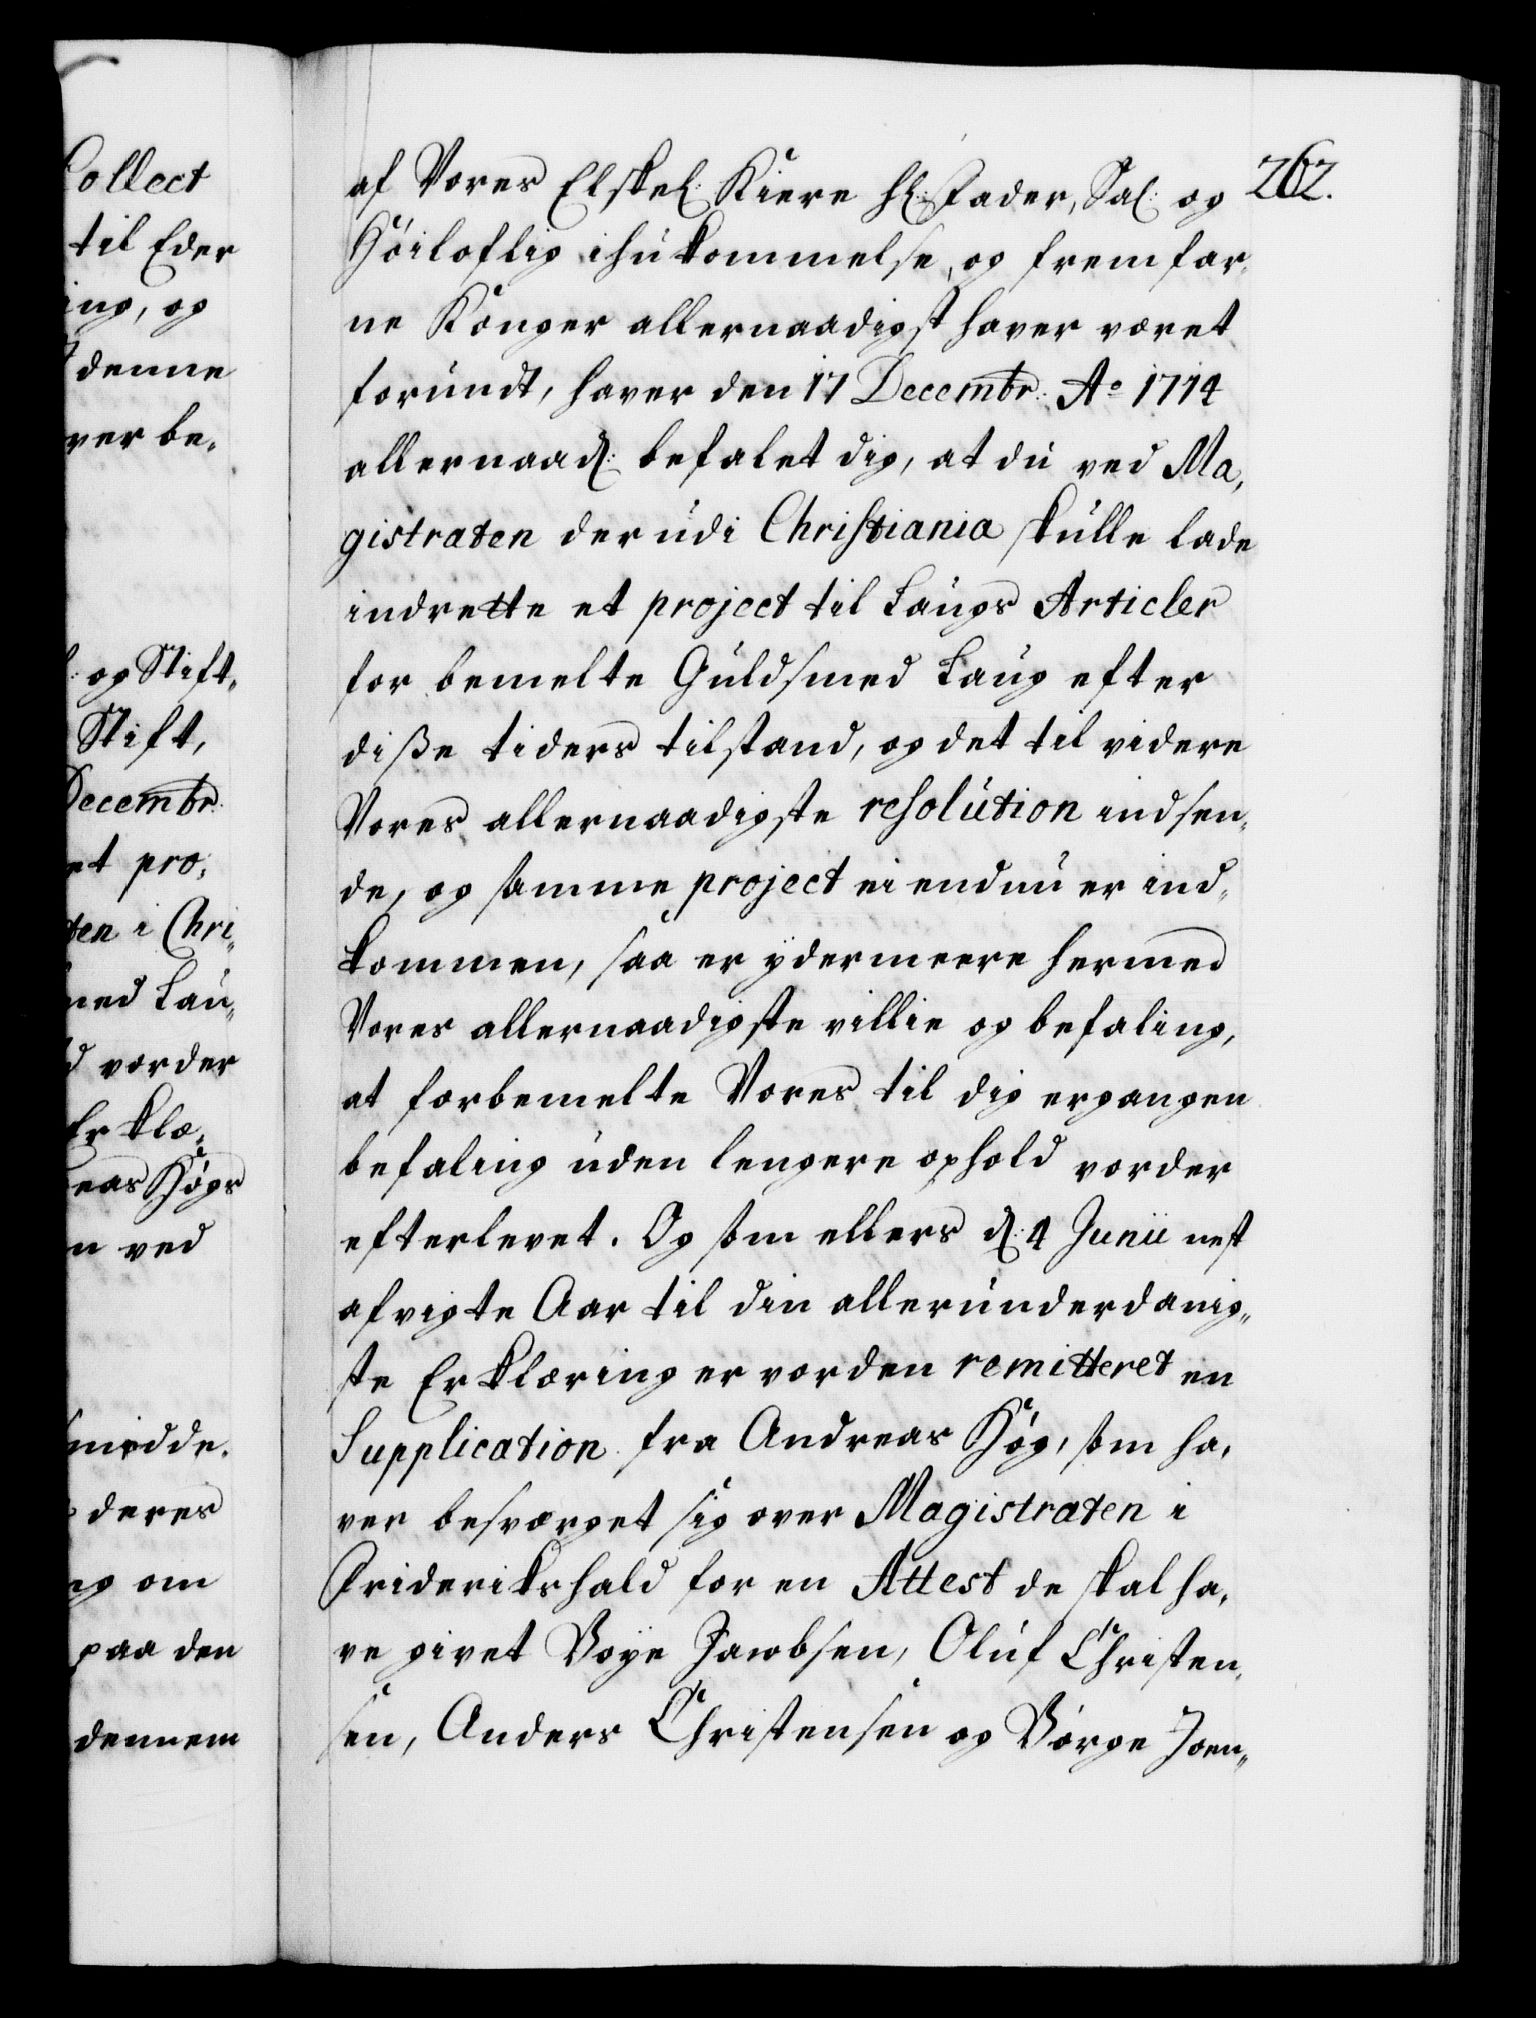 Collect
til Eder
ing, og
denne
ver be,
og Stift„
Stift,
Decembr:
et pro,
ten i Chri„
med Lau„
vorder
Erklæ,
eas Høgs
n ved
smedde.
deres
ng om
paa den
dennem
262.
af Vores Elskel: Kiere Hl: Fader, Sal: og
Høiloflig ihukommelse, og fremfar,
ne Konger allernaadigst haver været
forundt, haver den 17 Decembr: Ao 1714
allernaad: befalet dig, at du ved Ma,
gistraten der udi Christiania skulle lade
indrette et project til Laugs Articler
for bemelte Guldsmed Laug efter
diße tiders tilstand, og det til videre
Vores allernaadigste resolution indsen,
de, og samme project ei endnu er ind„
kommen, saa er ydermeere hermed
Vores allernaadigste villie og befaling,
at forbemelte Vores til dig ergangen
befaling uden lengere ophold vorder
efterlevet. Og som ellers d: 4 Junii nest
afvigte Aar til din allerunderdanig„
ste Erklæring er vorden remitteret en
Supplication fra Andreas Høg, som ha,
ver besværget sig over Magistraten i
Friderikshald for en Attest de skal ha,
ve givet Boye Jacobsen, Oluf Christen,
sen, Anders Christensen og Børge Joen„